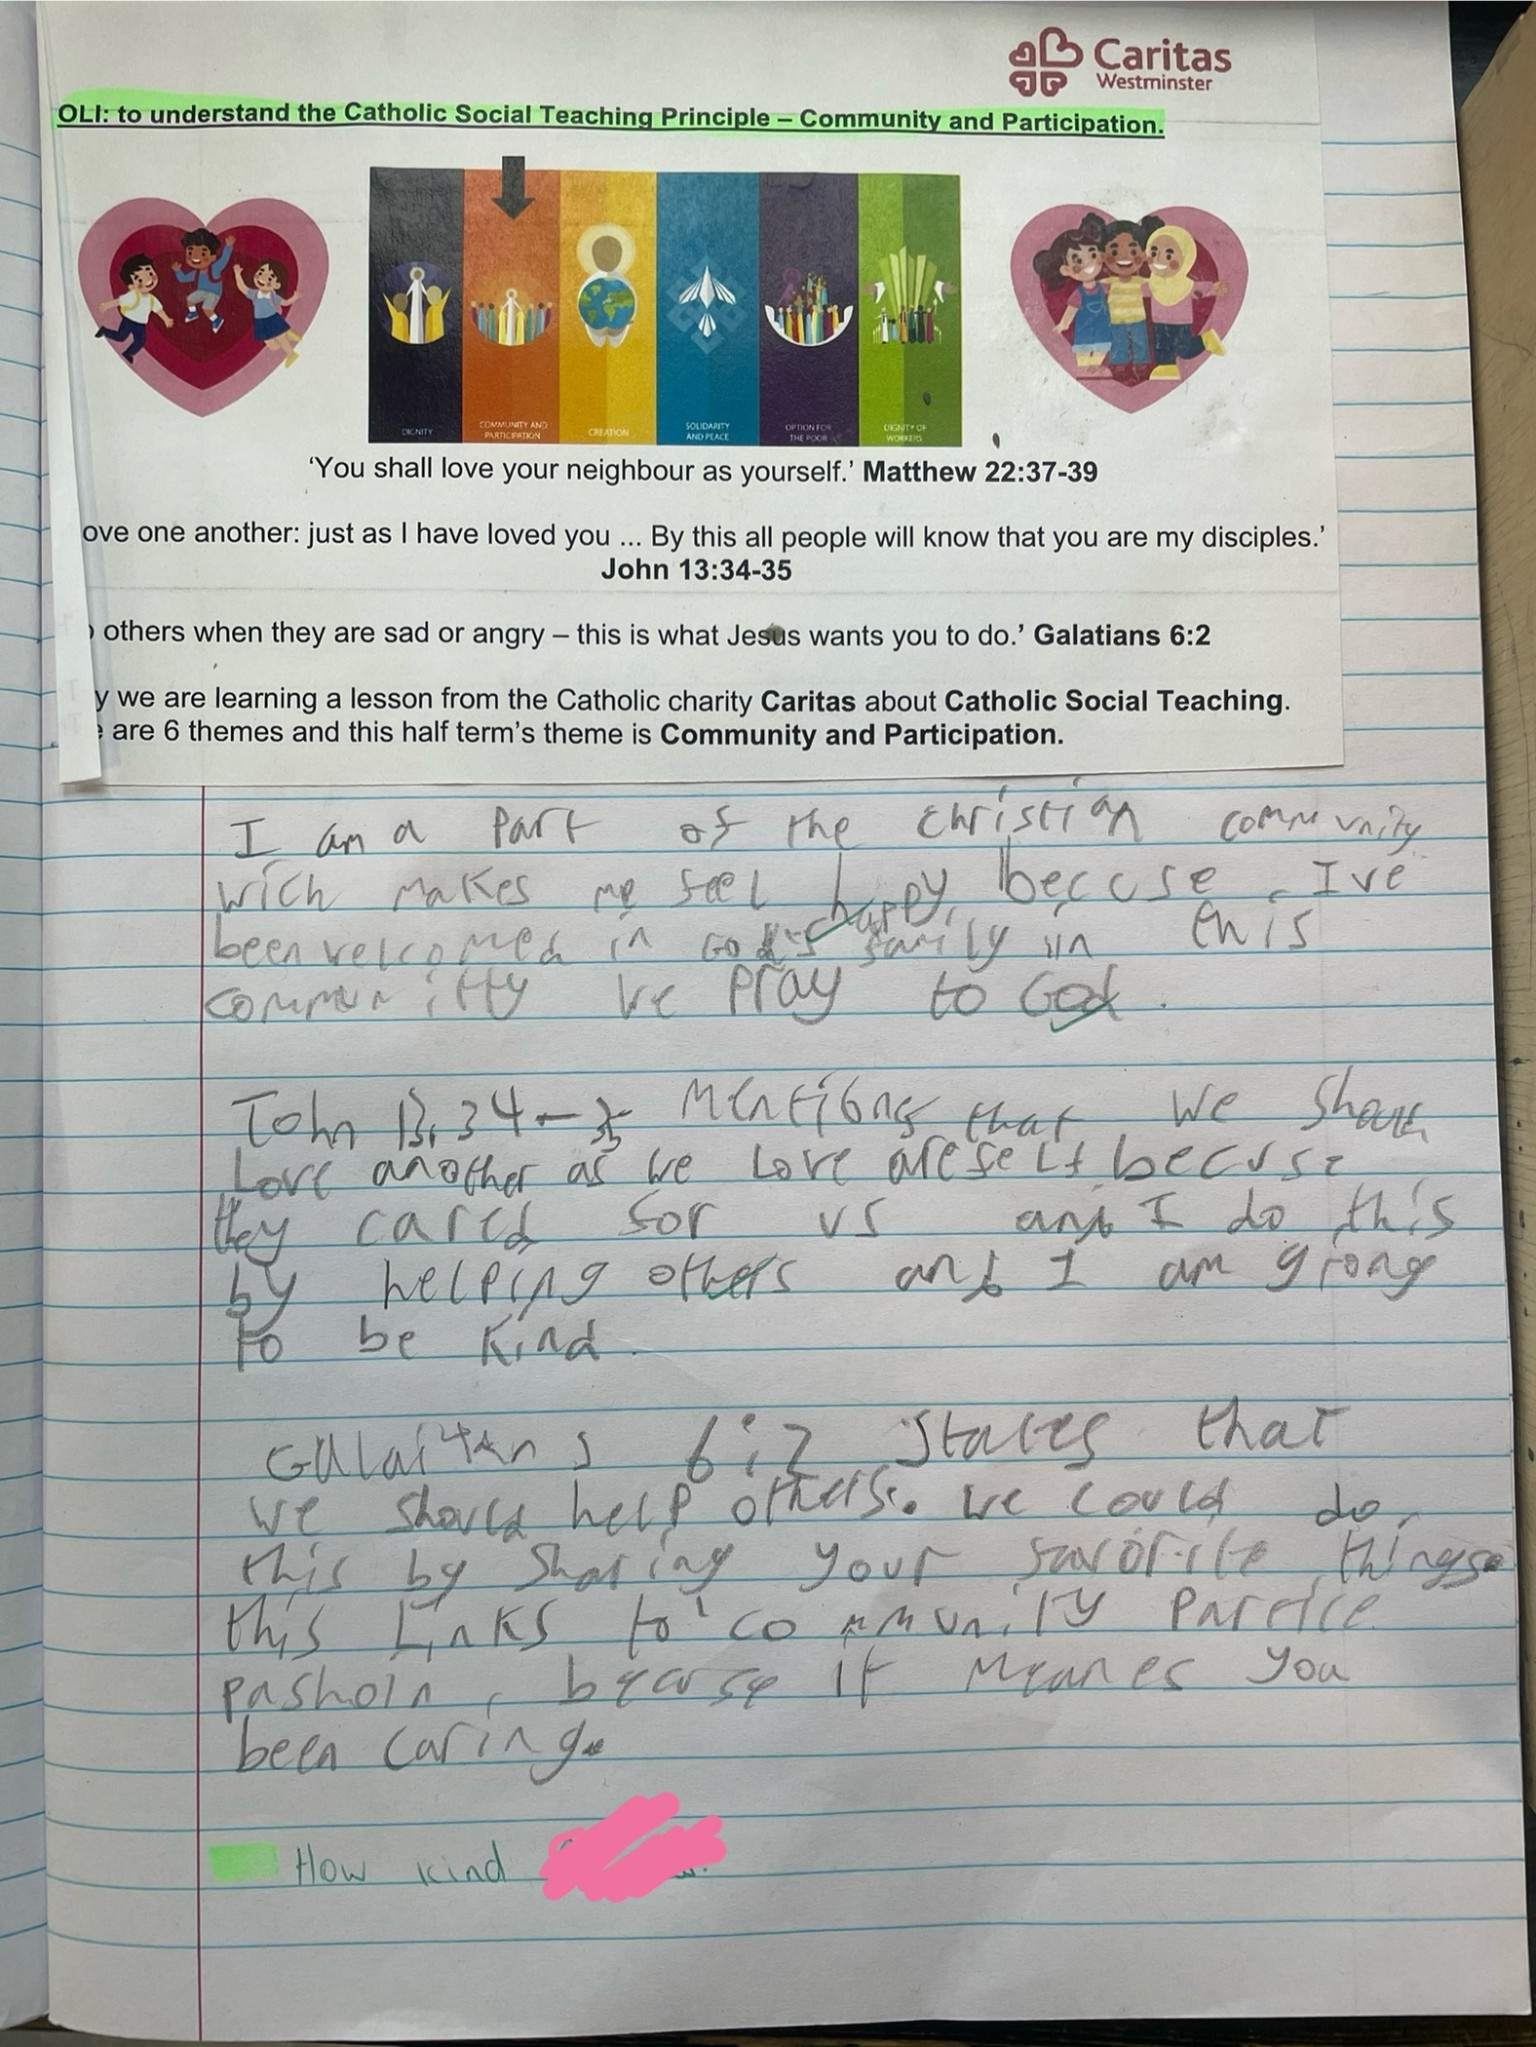 Caritas
Westminster
OLI: to understand the Catholic Social Teaching Principle – Community and Participation.
DIGNITY
COMMUNITY AND PARTICIPATION
CREATION
SOLIDARITY AND PEACE
OPTION FOR THE POOR
DIGNITY OF WORKERS
‘You shall love your neighbour as yourself.’ Matthew 22:37-39
ove one another: just as I have loved you ... By this all people will know that you are my disciples.’
John 13:34-35
others when they are sad or angry – this is what Jesus wants you to do.’ Galatians 6:2
y we are learning a lesson from the Catholic charity Caritas about Catholic Social Teaching.
are 6 themes and this half term’s theme is Community and Participation.
I am a part of the christian community
wich makes me feel happy, becuse I've
been welcomed in God's family in this
communitty we pray to God.
John 13:34-35 mentions that we
love another as we love areself becuse
they cared for us and I do this
by helping others and I am giong
to be kind.
6:2 states that
we should help others. we could do
this by sharing your favorite things.
this links to community partice
pashoin, becuse it meanes you
been caring.
How kind